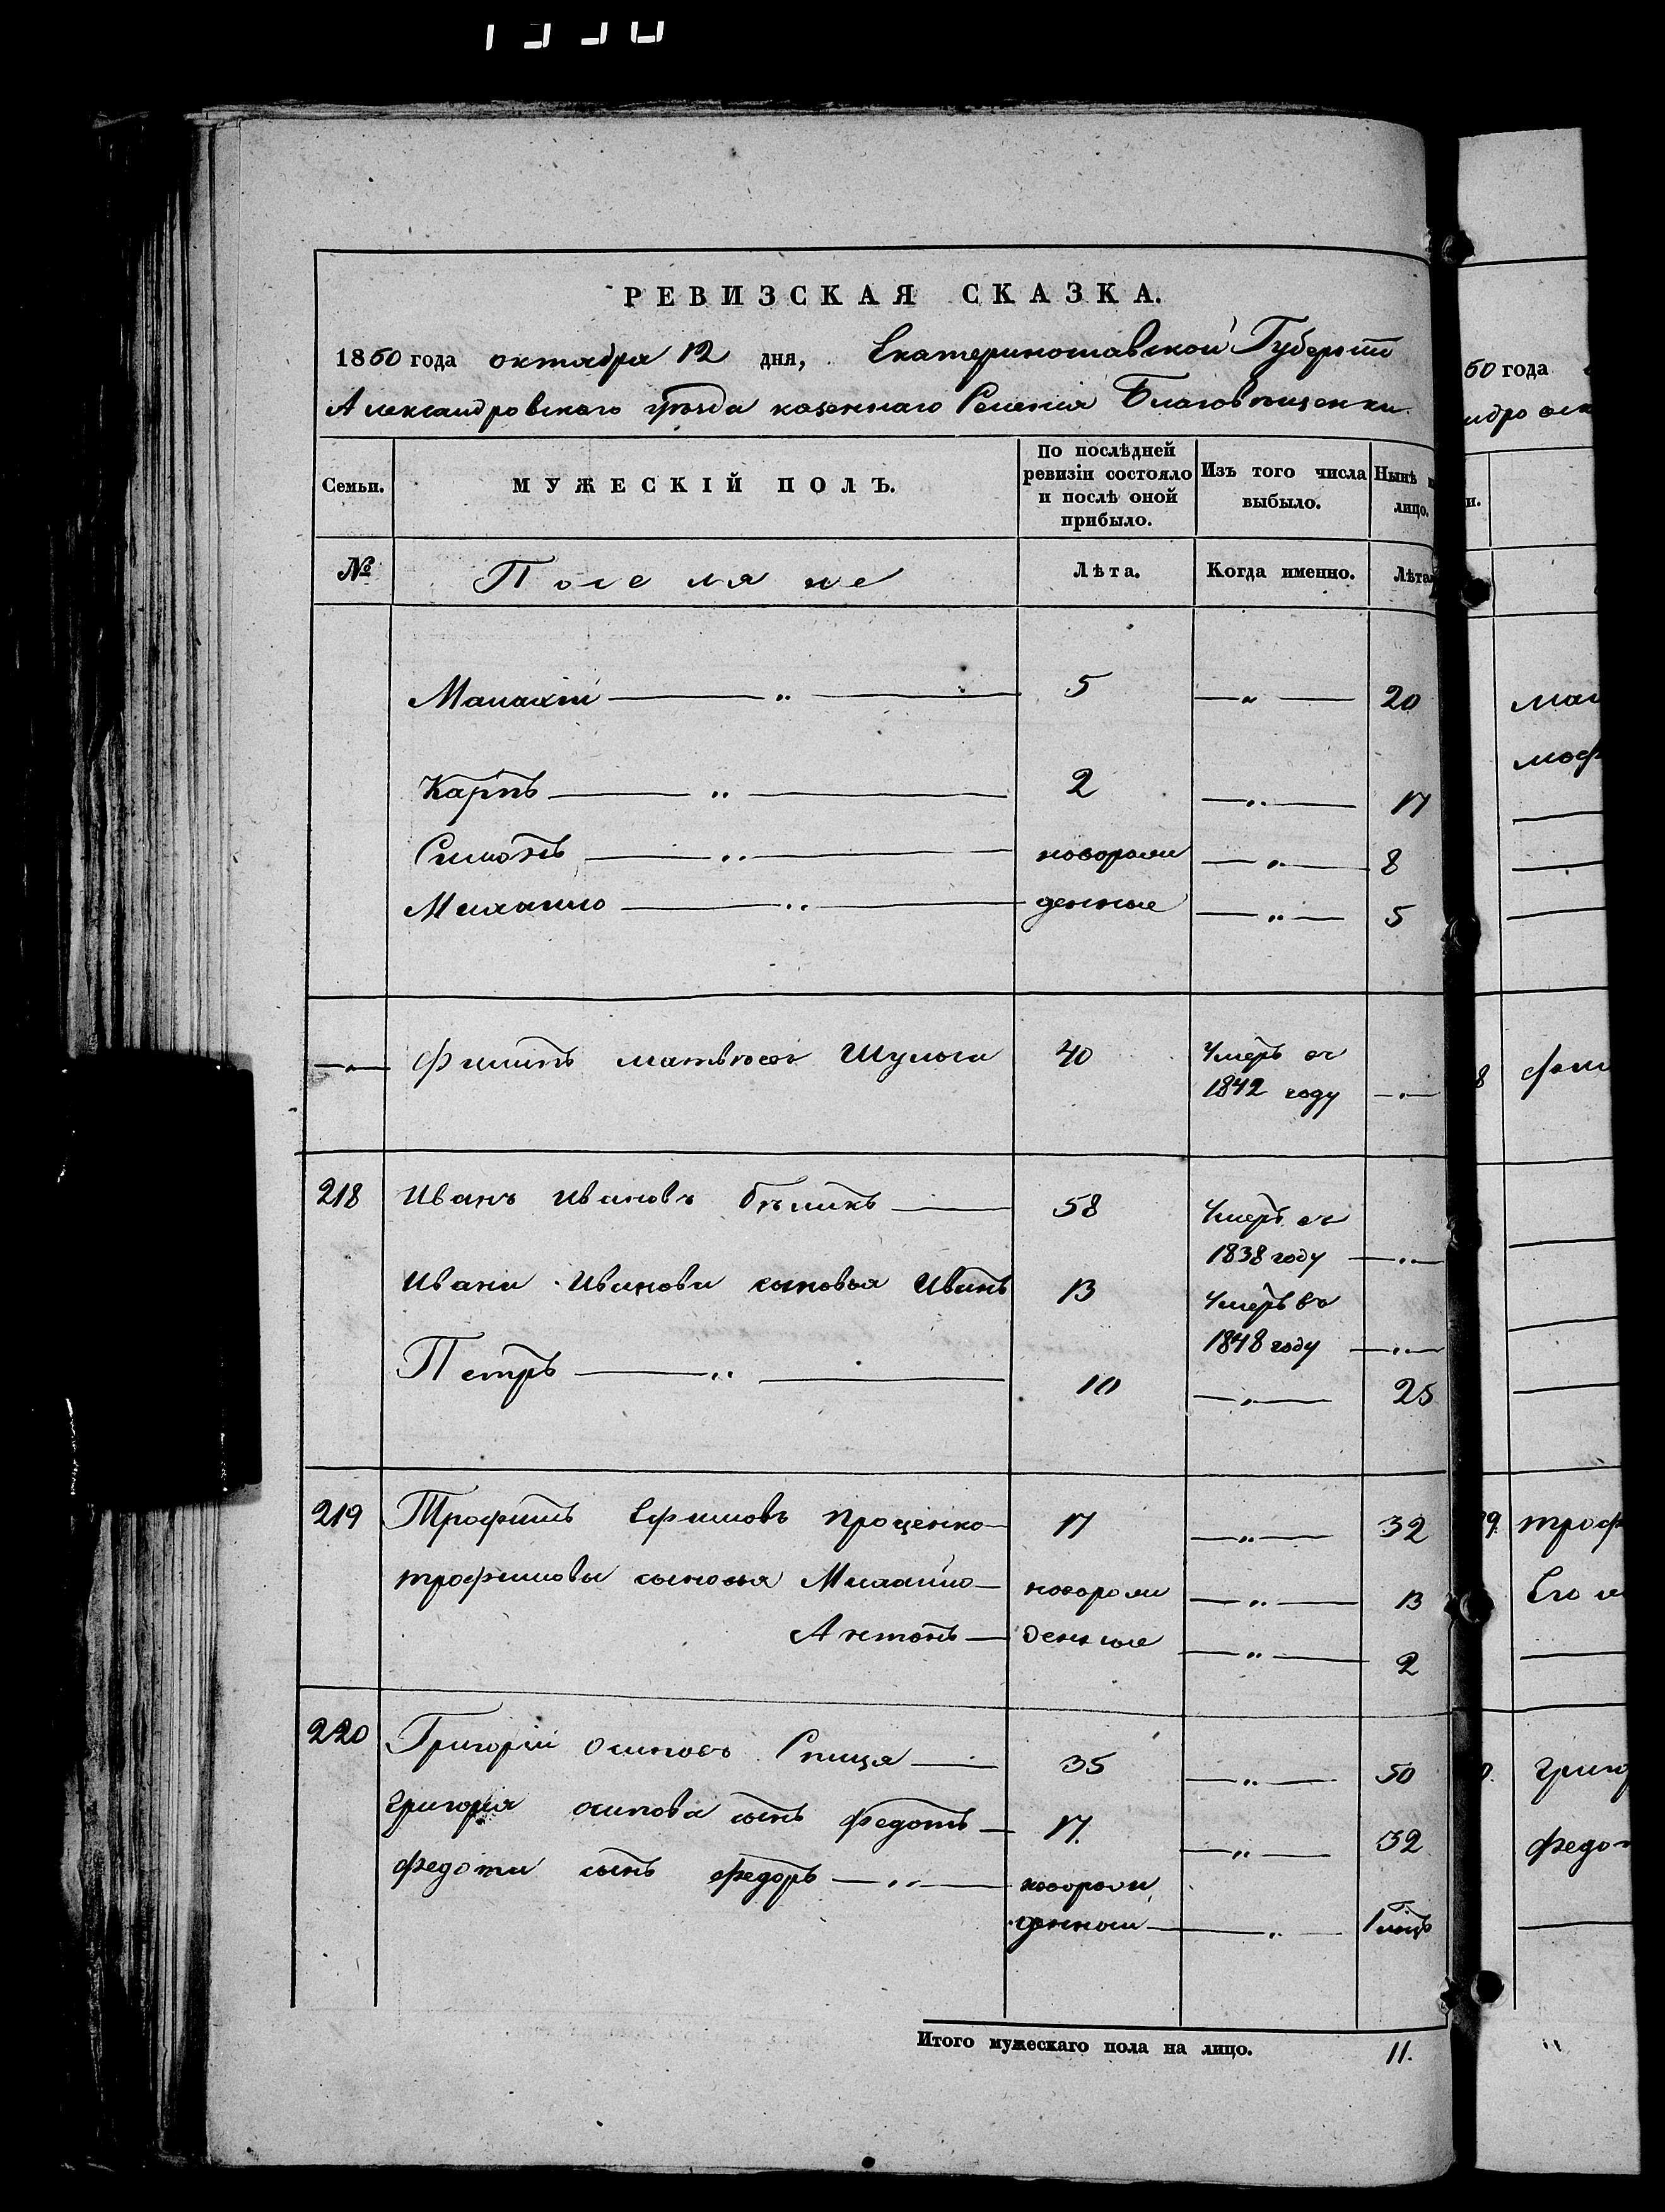 РЕВИЗСКАЯ СКАЗКА.
1850 года октября 12 дня, Екатеринославской Губернии
Александровского уѣзда казеннаго Селенія Благовѣщенки
50 года
Семьи.
МУЖЕСКІЙ ПОЛЪ.
По послѣдней ревизіи состояло и послѣ оной прибыло.
Изъ того числа выбыло.
Нынѣ лицо.
№
Поселяне
Лѣта.
Когда именно.
Лѣта
Малахій — " — 5 — " — 20
Карпъ — " — 2 — " — 17
Симонъ — " — новорож — " — 8
Михайло — " — денные — " — 5
— " — Филипъ Матвѣевъ Шулога 40 Умеръ въ
1842 году — " —
218 Иванъ Ивановъ Бѣликъ — 58 Умеръ въ
1838 году — " —
Ивана Иванова сыновья Иванъ 13 Умеръ въ
1848 году — " —
Петръ — " — 10 — " — 25
219 Трофимъ Ефимовъ Проценко — 17 — " — 32
трофимовы сыновья Михайло — новорож — " — 13
Антонъ — денные — " — 2
220 Григорій Осиповъ Спица — 35 — " — 50
Григорія осипова сынъ Федотъ — 17. — " — 32
Федота сынъ Федоръ — " — новорож
денный — " — 1 мѣцъ
Итого мужескаго пола на лицо. 11.